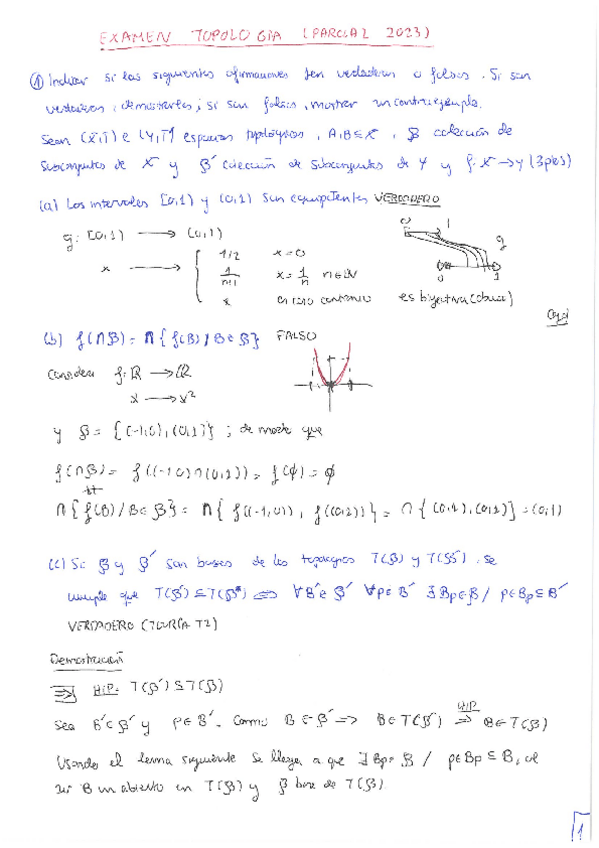 EXAMEN TOPOLOGÍA (PARCIAL 2023)
① Indicar si las siguientes afirmaciones son verdaderas o falsas. Si son
verdaderas, demostrarlas; si son falsas, mostrar un contraejemplo.
Sean (X,T) e (Y,T') espacios topológicos, A,B⊆X, β colección de
subconjuntos de X y β' colección de subconjuntos de Y y f: X→Y (3 ptos)
(a) Los intervalos [0,1) y (0,1) son equipotentes VERDADERO
g: [0,1) → (0,1)
x → { 1/2 x=0
1/(n+1) x=1/n n∈ℕ
x en caso contrario es biyectiva (obvio)
0 1 g
0 1
(b) f(∩β) = ∩{f(B)/B∈β} FALSO
Considera f: ℝ → ℝ
x → x²
y β = {(-1,0),(0,1)}; de modo que
f(∩β) = f((-1,0)∩(0,1)) = f(∅) = ∅
∩{f(B)/B∈β} = ∩{f((-1,0)), f((0,1))} = ∩{(0,1),(0,1)} = (0,1)
(c) Si β y β' son bases de las topologías T(β) y T(β'), se
cumple que T(β') ⊆ T(β) ⟺ ∀B'∈β' ∀p∈B' ∃Bp∈β / p∈Bp⊆B'
VERDADERO (TEORÍA T2)
Demostración
⟹ HIP: T(β') ⊆ T(β)
Sea B'∈β' y p∈B'. Como B∈β' ⟹ B∈T(β') ⟹ HIP B∈T(β)
Usando el lema siguiente se llega a que ∃Bp∈β / p∈Bp⊆B, al
ser B un abierto en T(β) y β base de T(β).
1